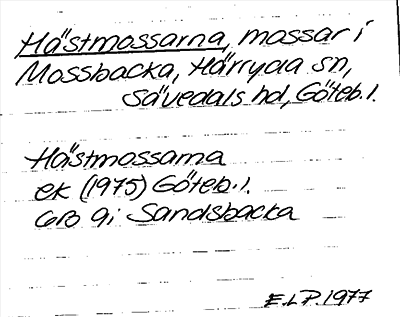 Hästmossarna, mossar i
Mossbacka, Härryda sn,
Sävedals hd, Göteb. l.
Hästmossarna
ek (1975) Göteb. l.
6B 9i Sandsbacka
E.L.P. 1977